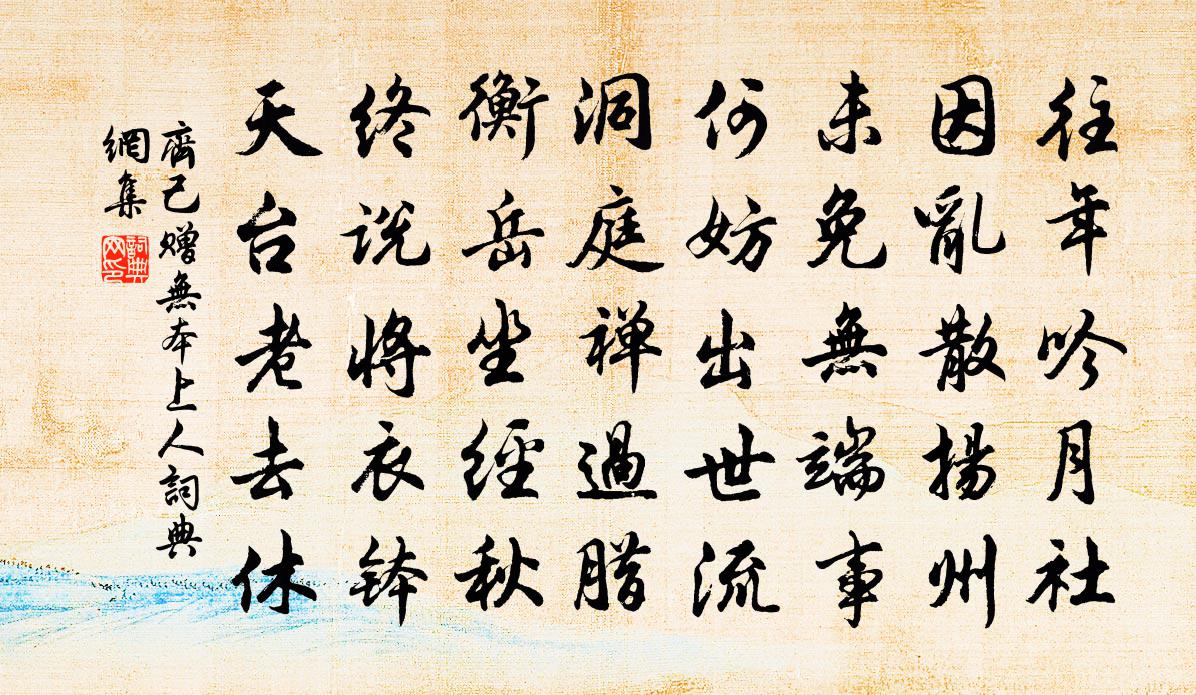 往年吟月社
因亂散揚州
未免無端事
何妨出世流
洞庭禅過腊
衡岳坐經秋
终说將衣钵
天台老去休
齊己贈無本上人詞典
網集
詞典
网印